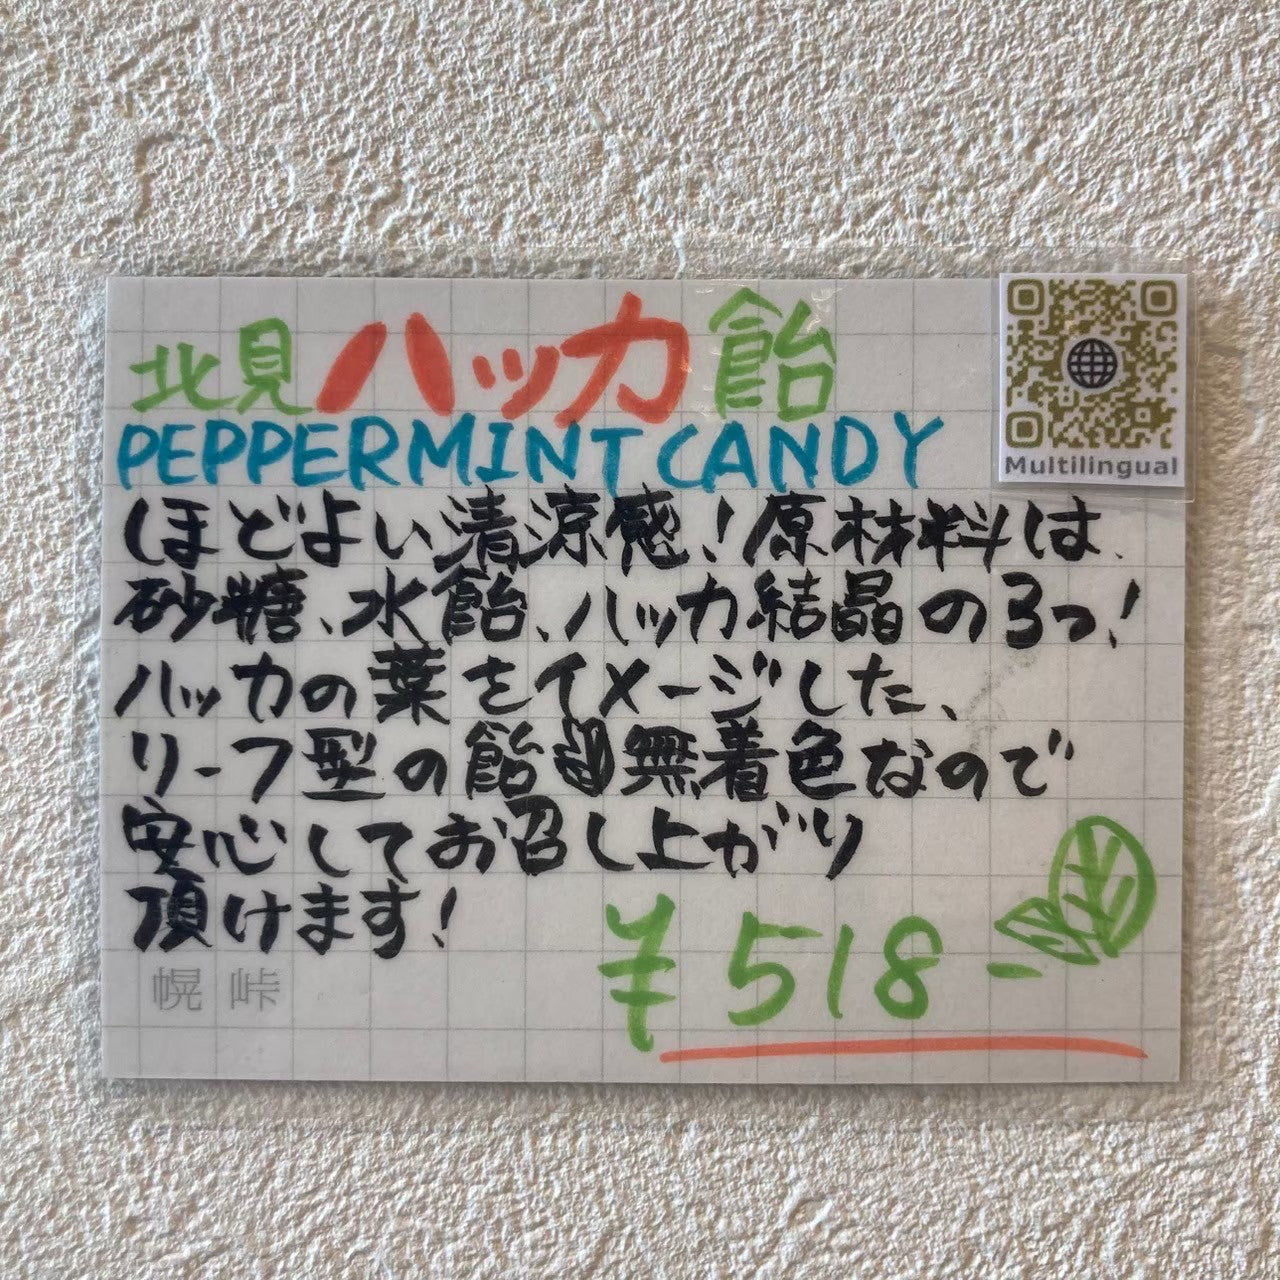 北見ハッカ飴
PEPPERMINT CANDY
Multilingual
ほどよい清涼感!原材料は、
砂糖、水飴、ハッカ結晶の3つ!
ハッカの葉をイメージした、
リーフ型の飴 無着色なので
安心してお召し上がり
頂けます!
幌 峠
¥518-